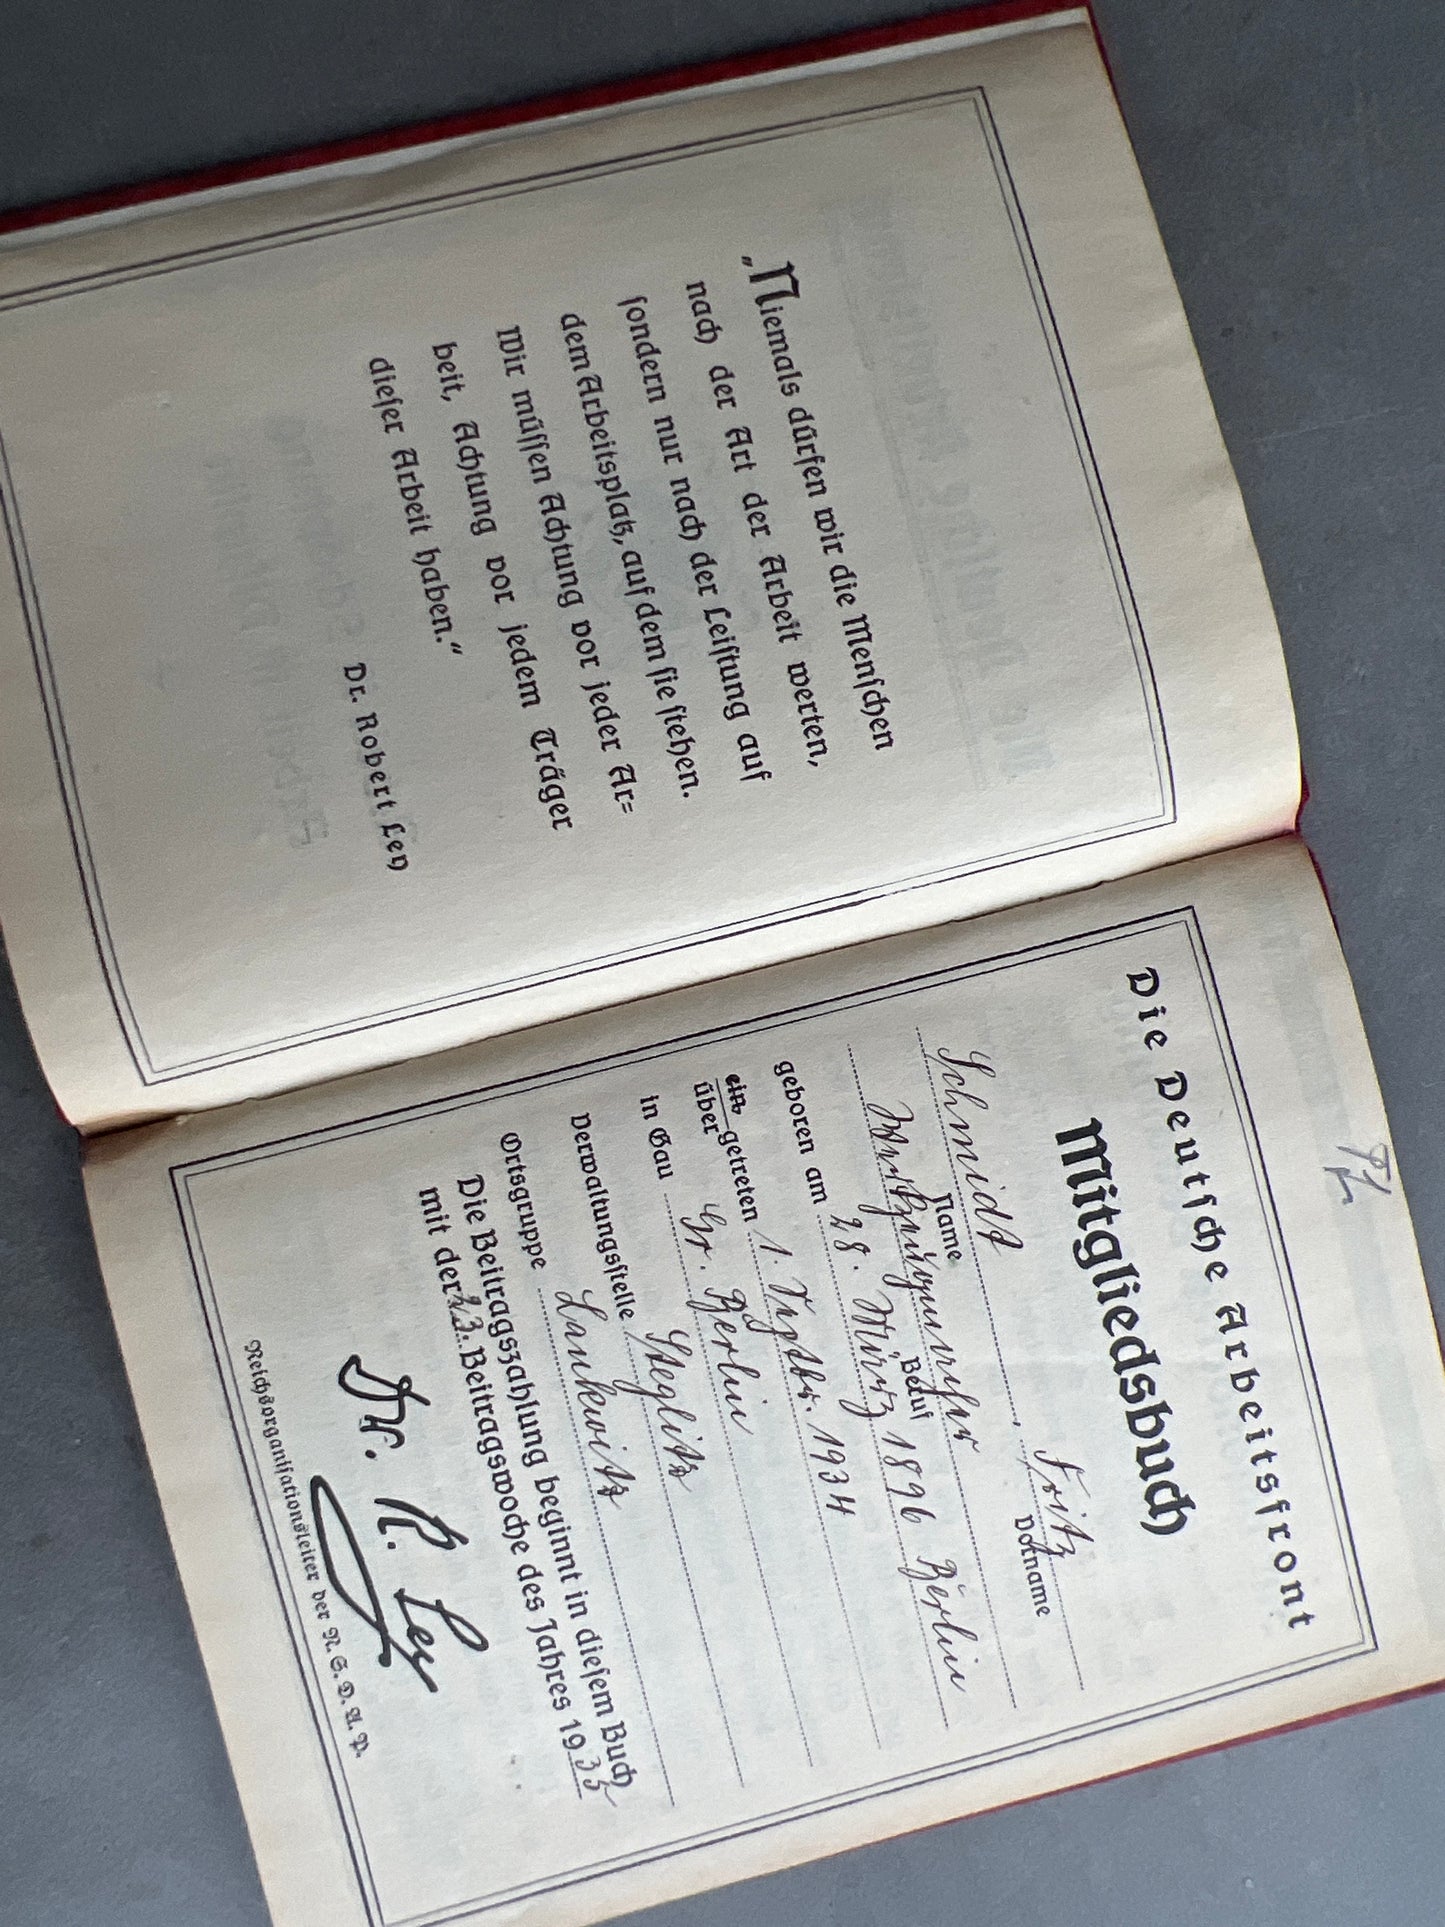 „Niemals dürfen wir die Menschen
nach der Art der Arbeit werten,
sondern nur nach der Leistung auf
dem Arbeitsplatz, auf dem sie stehen.
Wir müssen Achtung vor jeder Ar=
beit, Achtung vor jedem Träger
dieser Arbeit haben.“
Dr. Robert Ley
Die Deutsche Arbeitsfront
Mitgliedsbuch
Schmidt, Fritz
Name Vorname
Beruf
geboren am 28. März 1896 Berlin
ein
über getreten 1. Septbr. 1934
in Gau Gr. Berlin
Verwaltungsstelle Steglitz
Ortsgruppe Lankwitz
Die Beitragszahlung beginnt in diesem Buch
mit der 23. Beitragswoche des Jahres 1935
Dr. R. Ley
Reichsorganisationsleiter der N.S.D.A.P.